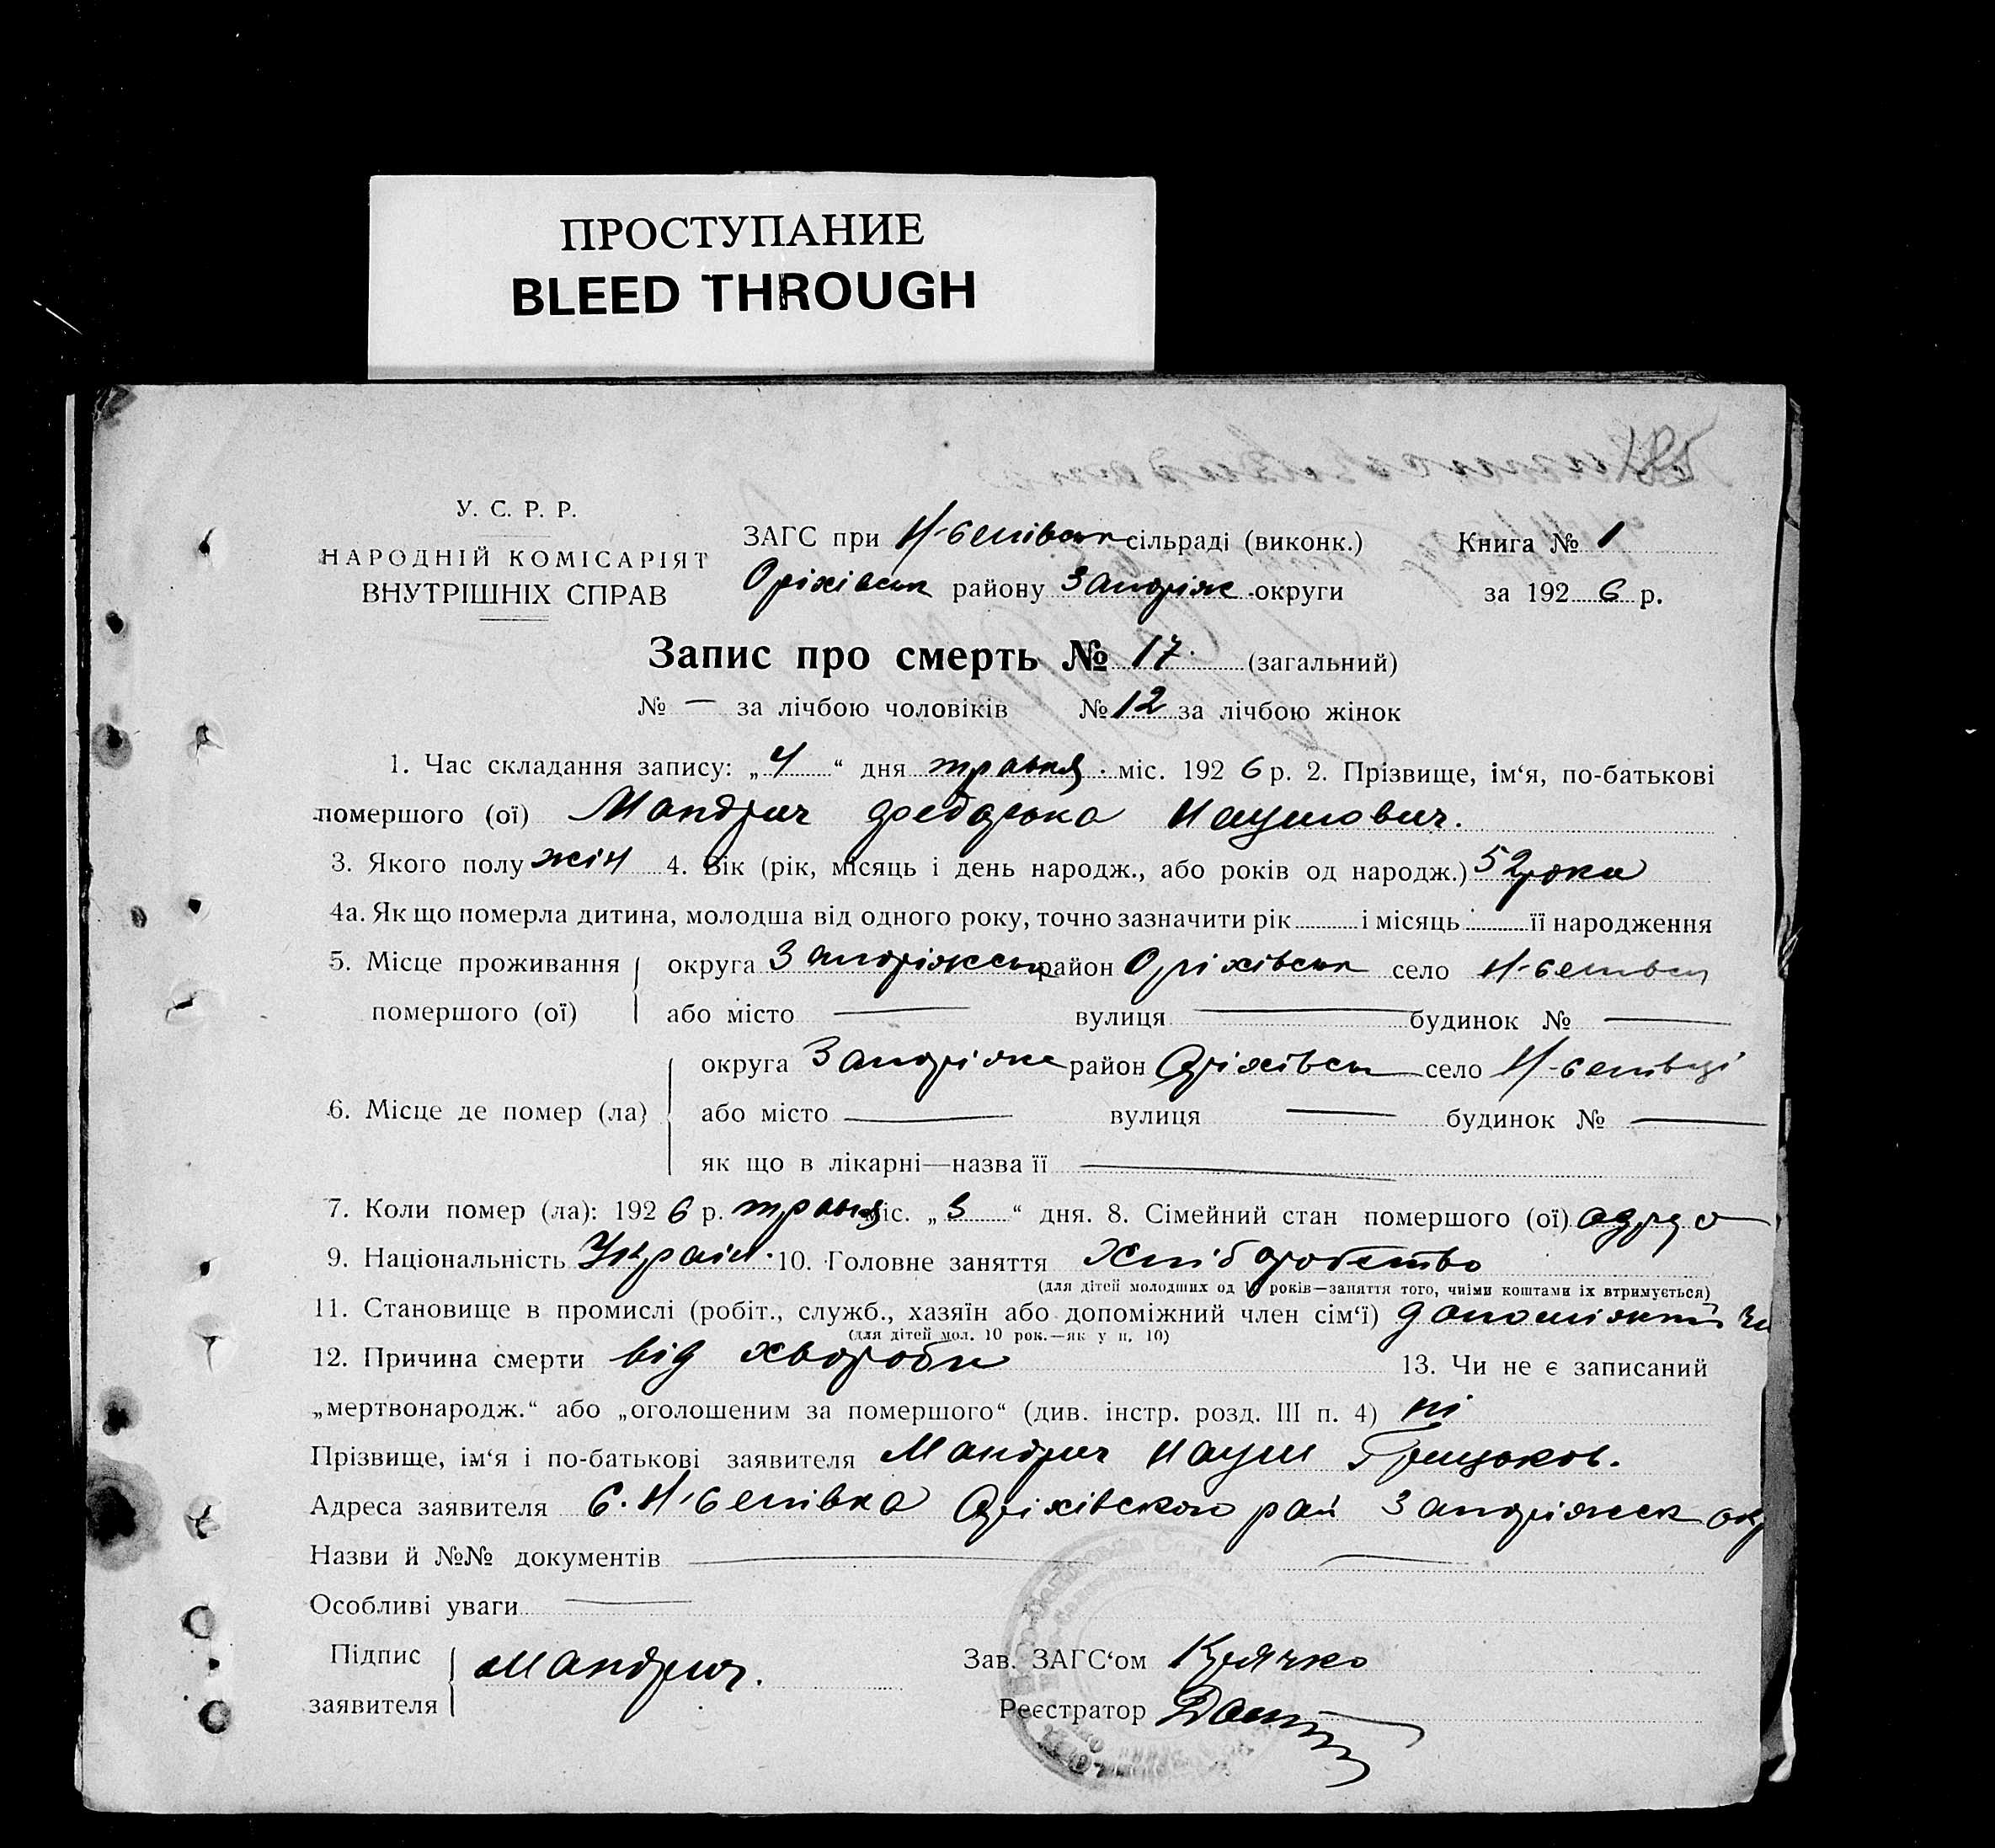 ПРОСТУПАНИЕ
BLEED THROUGH
У. С. Р. Р.
НАРОДНІЙ КОМІСАРІЯТ
ВНУТРІШНІХ СПРАВ
ЗАГС при сільраді (виконк.) Книга № 1
Оріхівськ району Запоріж округи за 1926 р.
Запис про смерть № 17. (загальний)
№ — за лічбою чоловіків № 12 за лічбою жінок
1. Час складання запису: „4“ дня травня міс. 1926 р. 2. Прізвище, ім‘я, по-батькові
помершого (ої) Мандрич Наумович.
3. Якого полу жін 4. Вік (рік, місяць і день народж., або років од народж.) 52 роки
4а. Як що померла дитина, молодша від одного року, точно зазначити рік і місяць її народження
5. Місце проживання помершого (ої) округа Запоріжськ район Оріхівськ село
або місто — вулиця — будинок № —
6. Місце де помер (ла) округа Запоріжс район Оріхівськ село
або місто — вулиця — будинок № —
як що в лікарні—назва її —
7. Коли помер (ла): 1926 р. травня міс. „3“ дня. 8. Сімейний стан помершого (ої)
9. Національність Україн. 10. Головне заняття Хліборобство
(для дітей молодших од 10 років—заняття того, чиїми коштами їх втримується)
11. Становище в промислі (робіт., служб., хазяїн або допоміжний член сім‘ї) допоміжний чл
(для дітей мол. 10 рок.—як у п. 10)
12. Причина смерти від хвороби 13. Чи не є записаний
„мертвонародж.“ або „оголошеним за помершого“ (див. інстр. розд. III п. 4) ні
Прізвище, ім‘я і по-батькові заявителя Мандрич Наум Грицьков.
Адреса заявителя с. Оріхівського рай Запоріжськ окр
Назви й №№ документів —
Особливі уваги —
Підпис заявителя Мандрич. Зав. ЗАГС‘ом Крячко
Реєстратор